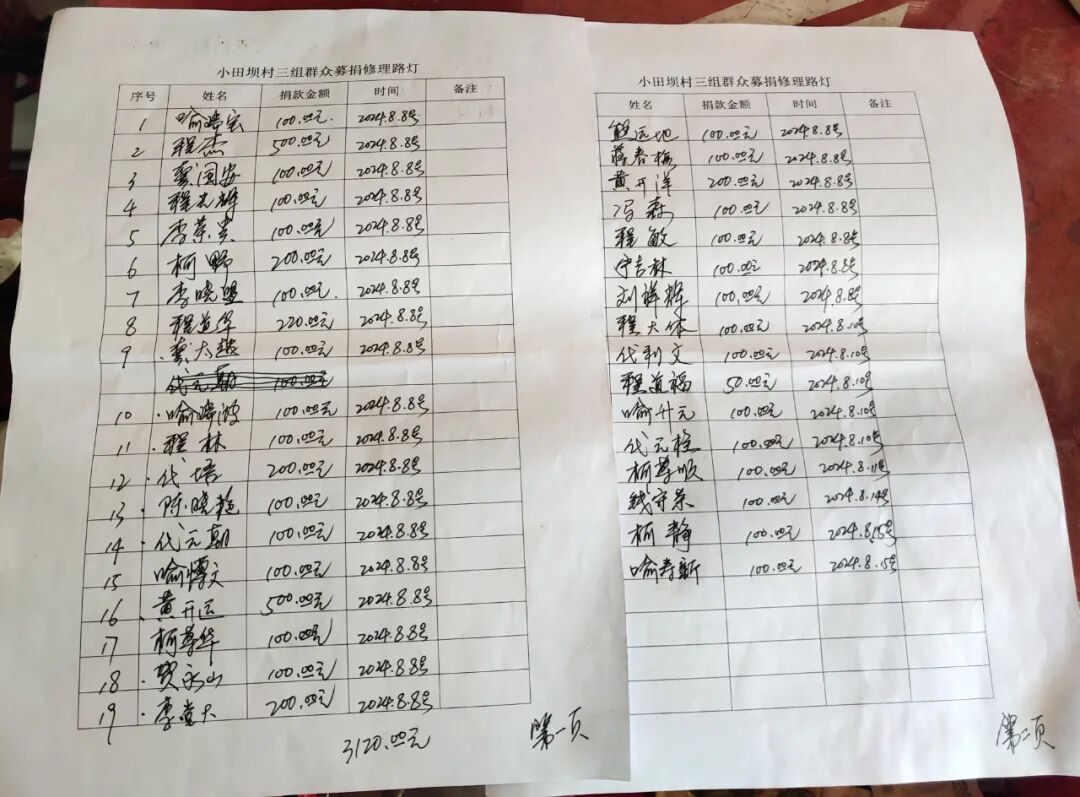 小田坝村三组群众募捐修理路灯
序号 姓名 捐款金额 时间 备注
1 喻婷宏 100.00元. 2024.8.8号
2 程杰 500.00元 2024.8.8号
3 国安 100.00元 2024.8.8号
4 程 100.00元 2024.8.8号
5 李荣贵 100.00元 2024.8.8号
6 柯野 200.00元 2024.8.8号
7 李晓盟 100.00元. 2024.8.8号
8 程道华 220.00元 2024.8.8号
9 大越 100.00元 2024.8.8号
代元朝 100.00元
10 喻婷波 100.00元 2024.8.8号
11 程林 100.00元 2024.8.8号
12 代培 200.00元 2024.8.8号
13 陈晓 100.00元 2024.8.8号
14 代元朝 100.00元 2024.8.8号
15 喻博文 100.00元 2024.8.8号
16 黄开运 500.00元 2024.8.8号
17 柯尊华 100.00元 2024.8.8号
18 贺永山 100.00元 2024.8.8号
19 李大 200.00元 2024.8.8号
3120.00元
第一页
小田坝村三组群众募捐修理路灯
姓名 捐款金额 时间 备注
熊运地 100.00元 2024.8.8号
蒋春梅 100.00元 2024.8.8号
黄开洋 200.00元 2024.8.8号
冯森 100.00元 2024.8.8号
程敏 100.00元 2024.8.8号
宁吉林 100.00元 2024.8.8号
刘祥辉 100.00元 2024.8.8号
程大体 100.00元 2024.8.10号
代利文 100.00元 2024.8.10号
程道福 50.00元 2024.8.10号
喻升元 100.00元 2024.8.10号
代元 100.00元 2024.8.10号
柯尊顺 100.00元 2024.8.11号
钱守荣 100.00元 2024.8.14号
柯静 100.00元 2024.8.15号
喻寿新 100.00元 2024.8.15号
第二页